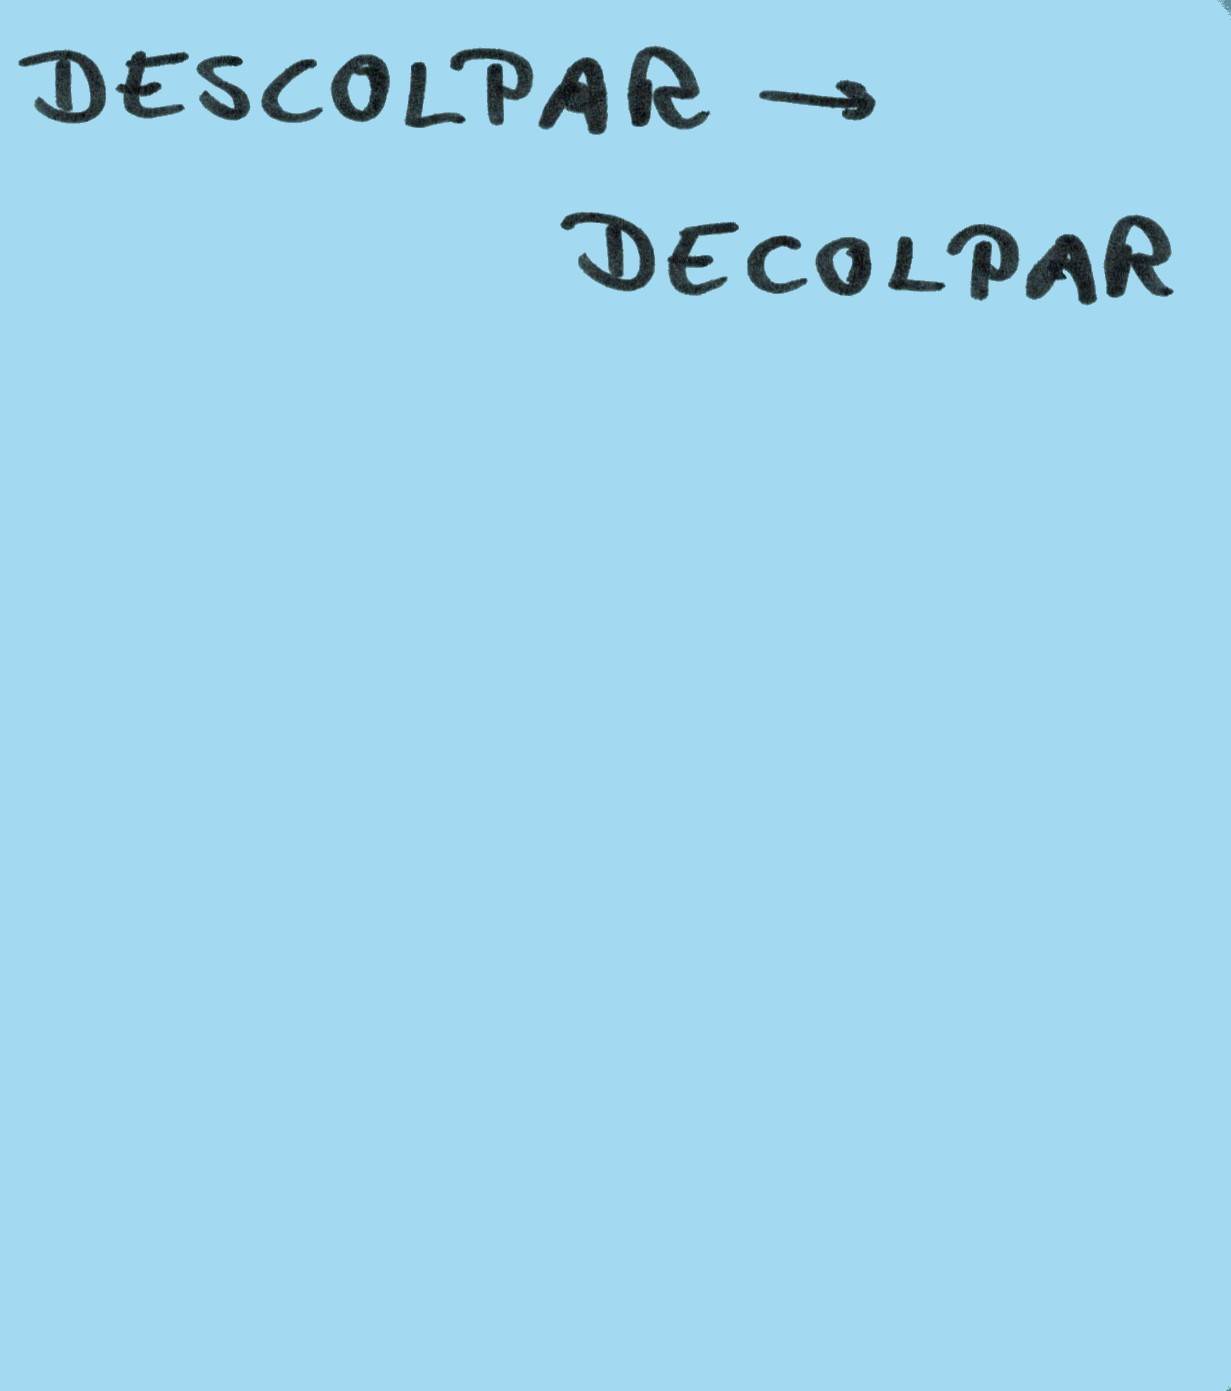 DESCOLPAR →
DECOLPAR